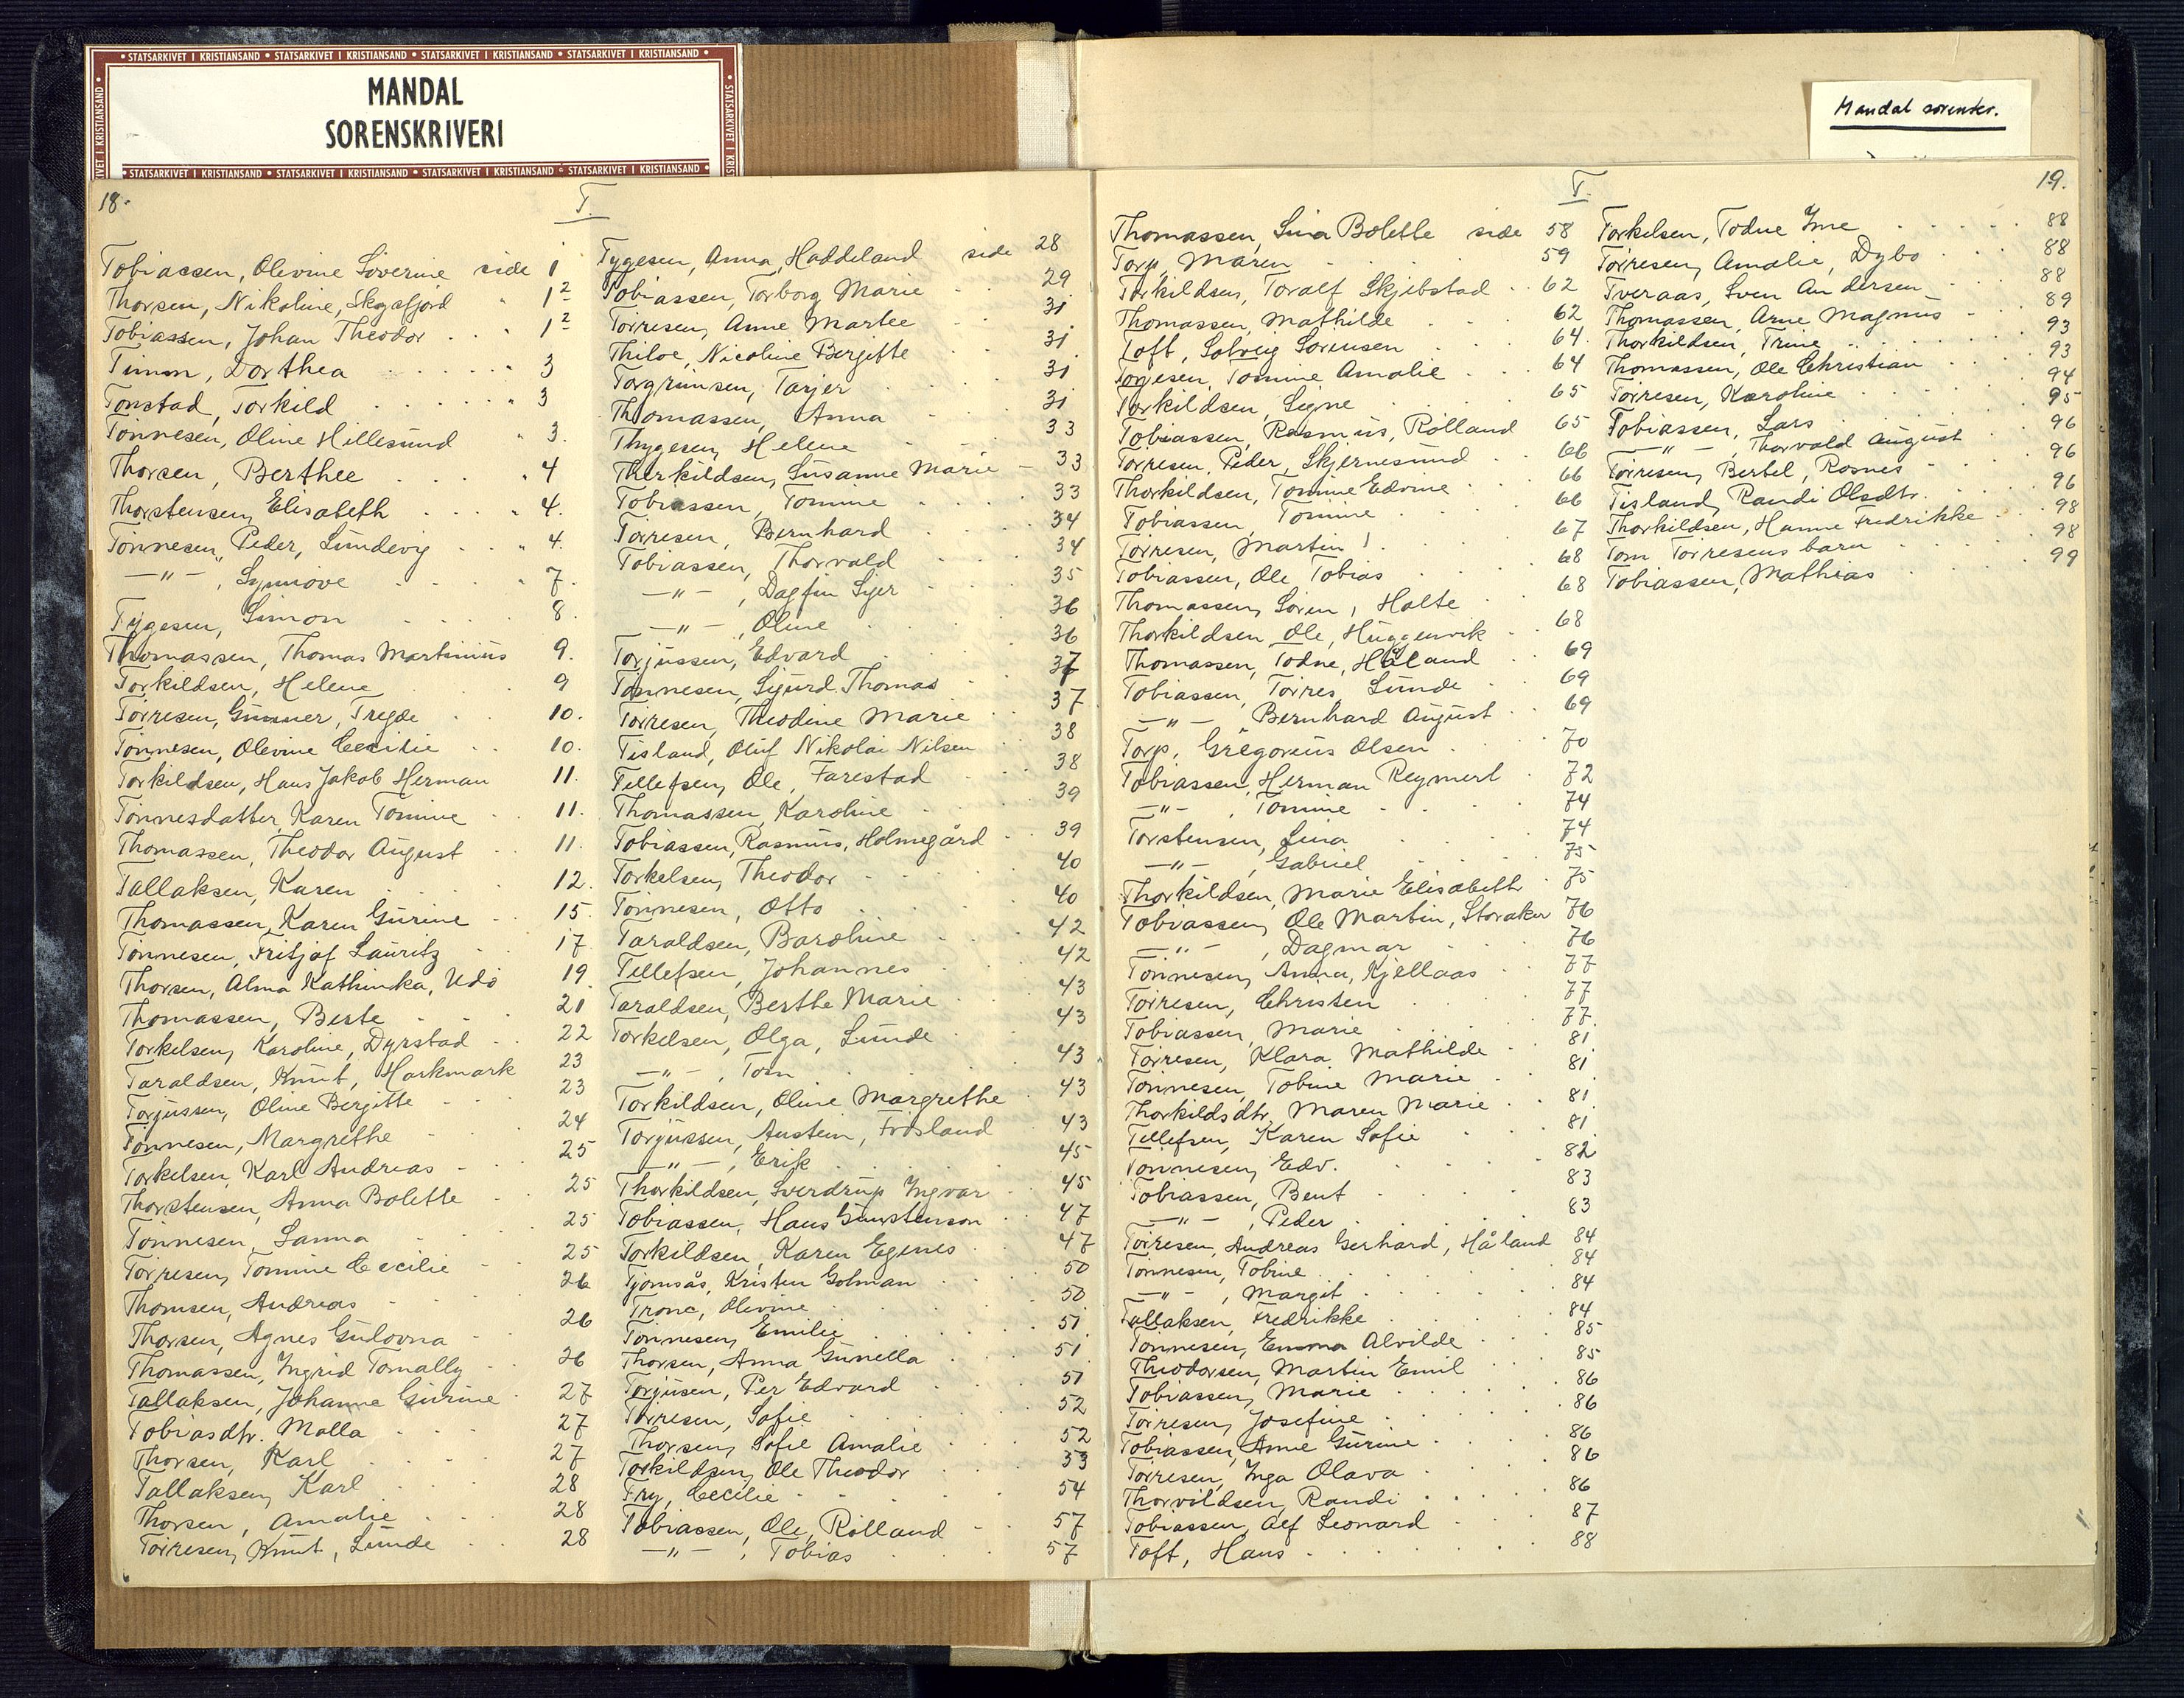 STATSARKIVET I KRISTIANSAND • STATSARKIVET I KRISTIANSAND • STATSARKIVET I KRISTIANSAND • STATSARKIVET I KRISTIANSAND
MANDAL
SORENSKRIVERI
STATSARKIVET I KRISTIANSAND • STATSARKIVET I KRISTIANSAND • STATSARKIVET I KRISTIANSAND • STATSARKIVET I KRISTIANSAND
Mandal sorenskr.
18.
T.
Tobiassen, Olevine Severine side 1
Thorsen, Nikoline, Skogsfjord " 1²
Tobiassen, Johan Theodor . . " 1²
Timon, Dorthea . . . . . " 3
Tonstad, Torkild . . . . " 3
Tönnesen, Oline Hillesund " 3.
Thorsen, Berthee . . . " 4
Thorstensen, Elisabeth . . . " 4.
Tönnesen, Peder, Lundevig . . " 4.
—"— , Synnöve . . . " 7.
Tygesen, Simon . . . 8.
Thomassen, Thomas Martinius 9.
Torkildsen, Helene . . 9
Törresen, Gunner, Tregde . 10.
Tönnesen, Olevine Cecilie . . 10.
Torkildsen, Hans Jakob Herman 11.
Tönnesdatter, Karen Tomine . 11.
Thomassen, Theodor August . 11.
Tallaksen, Karen . . . . 12.
Thomassen, Karen Gurine . . 15.
Tönnesen, Fritjof Lauritz . 17.
Thorsen, Alma Kathinka, Udö 19
Thomassen, Berte . . . 21
Torkelsen, Karoline, Dyrstad . . 22
Taraldsen, Knut, Harkmark 23
Torjussen, Oline Bergitte . . 23
Tönnesen, Margrethe . . 24
Torkelsen, Karl Andreas . . 25
Thorstensen, Anna Bolette . . 25
Tönnesen, Sanna . . . 25
Törresen, Tomine Cecilie . . 25
Thomsen, Andreas . . . 26
Thorsen, Agnes Gulovna . . 26
Thomassen, Ingrid Tomally . . 26
Tallaksen, Johanne Gurine . 27
Tobiasdtr. Malla . . . 27
Thorsen, Karl . . . . 27
Tallaksen, Karl . . . 28
Thorsen, Amalie . . . 28
Törresen, Knut, Lunde . . 28
Tygesen, Anna, Haddeland side 28
Tobiassen, Torborg Marie . . 29
Törresen, Anne Martee . . 31
Thiloe, Nicoline Bergitte . . 31
Torgrimsen, Tarjer . . . . 31
Thomassen, Anna . . . 31
Thygesen, Helene . . . 33
Therkildsen, Susanne Marie — 33
Tobiassen, Tomine . . . . 33
Törresen, Bernhard . . . 34
Tobiassen, Thorvald . . . 34
—"— , Dagfin Syer . . 35
—"— , Oline . . . 36
Torjussen, Edvard . . . 36
Tönnesen, Sigurd Thomas . . 37
Törresen, Theodine Marie . . 37
Tisland, Oluf Nikolai Nilsen . . 38
Tellefsen, Ole, Farestad . . . 38
Thomassen, Karoline . . . 39
Tobiassen, Rasmus, Holmegård . . 39
Torkelsen, Theodor . . . . 40
Tönnesen, Otto . . . . 40
Taraldsen, Baroline . . . 42
Tellefsen, Johannes . . . 42
Taraldsen, Berthe Marie . . 43
Torkelsen, Olga, Lunde . . 43
—"— , Tom . . . . 43
Torkildsen, Oline Margrethe . 43
Torjussen, Austein, Frösland . . 43
—"— , Erik . . . . 45
Thorkildsen, Sverdrup Ingvar . 45
Tobiassen, Hans Gunstenson . . 47
Torkildsen, Karen Egenes . . 47
Tjomsås, Kristen Golman . . 50
Trone, Olevine . . . . 50
Tönnesen, Emilie . . . . 51
Thorsen, Anna Gunella . . . 51
Torjusen, Per Edvard . . . 51
Törresen, Sofie . . . . 52
Thorsen, Sofie Amalie . . 52
Torkildsen, Ole Theodor . . . 53
Fry, Cecilie . . . . . 54
Tobiassen, Ole, Rölland . . . 57
—"— , Tobias . . . . 57
19.
T.
Thomassen, Sina Bolette side 58
Torp, Maren . . . . . 59
Torkildsen, Toralf Skjebstad . . 62
Thomassen, Mathilde . . . 62
Toft, Solveig Sorensen . . 64.
Torjesen, Tomine Amalie . . 64
Torkildsen, Signe . . . 65
Tobiassen, Rasmus, Rölland 65
Törresen, Peder, Skjernesund . . 66
Thorkildsen, Tomine Edvine . . 66
Tobiassen, Tomine . . . 66
Törresen, Martin . . . . 67
Tobiassen, Ole Tobias . . . 68
Thomassen, Sören, Holte . . 68
Thorkildsen, Ole, Huggenvik . 68
Thomassen, Todne, Håland . . 69
Tobiassen, Törres, Lunde . . 69
—"— Bernhard August . . 69
Torp, Gregorius Olsen . . . 70
Tobiassen, Herman Reymert . 72
—"— , Tomine . . . . 74
Torstensen, Lina . . . . 74
—"— , Gabriel . . . . 75
Thorkildsen, Marie Elisabeth . 75
Tobiassen, Ole Martin, Storaker 76
—"— , Dagmar . . . 76
Tönnesen, Anna, Kjellaas . . 77
Törresen, Christen . . . 77
Tobiassen, Marie . . . . 77.
Törresen, Klara Mathilde . 81
Tönnesen, Tobine Marie . . 81
Thorkildsdtr, Maren Marie . . 81
Tellefsen, Karen Sofie . . 81
Tönnesen, Edv. . . . . 82
Tobiassen, Bent . . . . 83
—"— , Peder . . . . . 83
Törresen, Andreas Gerhard, Håland 84
Tönnesen, Tobine . . . . 84
—"— , Margit . . . . 84
Tallaksen, Fredrikke . . . 84
Tönnesen, Emma Alvilde . . 85
Theodorsen, Martin Emil . . 85
Tobiassen, Marie . . . . 86
Törresen, Josefine . . . . 86
Tobiassen, Anne Gurine . . 86
Törresen, Inga Olava . . . 86
Thorvildsen, Randi . . . . 86
Tobiassen, Alf Leonard . . 87
Toft, Hans . . . . . . 88
Torkelsen, Todne Yme . . . . 88
Törresen, Amalie, Dybo . . 88
Tveraas, Sven Andersen . . 88
Thomassen, Arne Magnus . 89
Thorkildsen, Trine . . . . 93
Thomassen, Ole Christian . . 93
Törresen, Karoline . . . . 94
Tobiassen, Lars . . . . 95
—"— , Thorvald August . . 96
Törresen, Bertel, Rosnes . . 96
Tisland, Randi Olsdtr. . . . 96
Thorkildsen, Hanne Fredrikke . . 98
Tom Törresens barn . . . 98
Tobiassen, Mathias . . . . 99